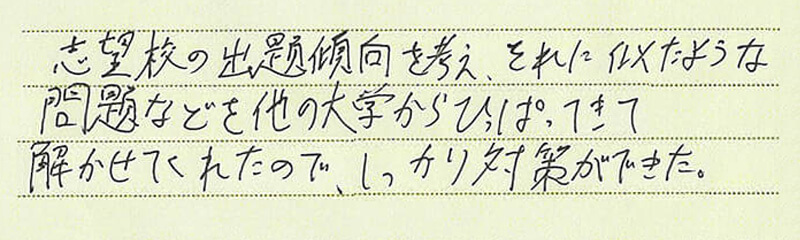 志望校の出題傾向を考え、それに似たような
問題などを他の大学からひっぱってきて
解かせてくれたので、しっかり対策ができた。